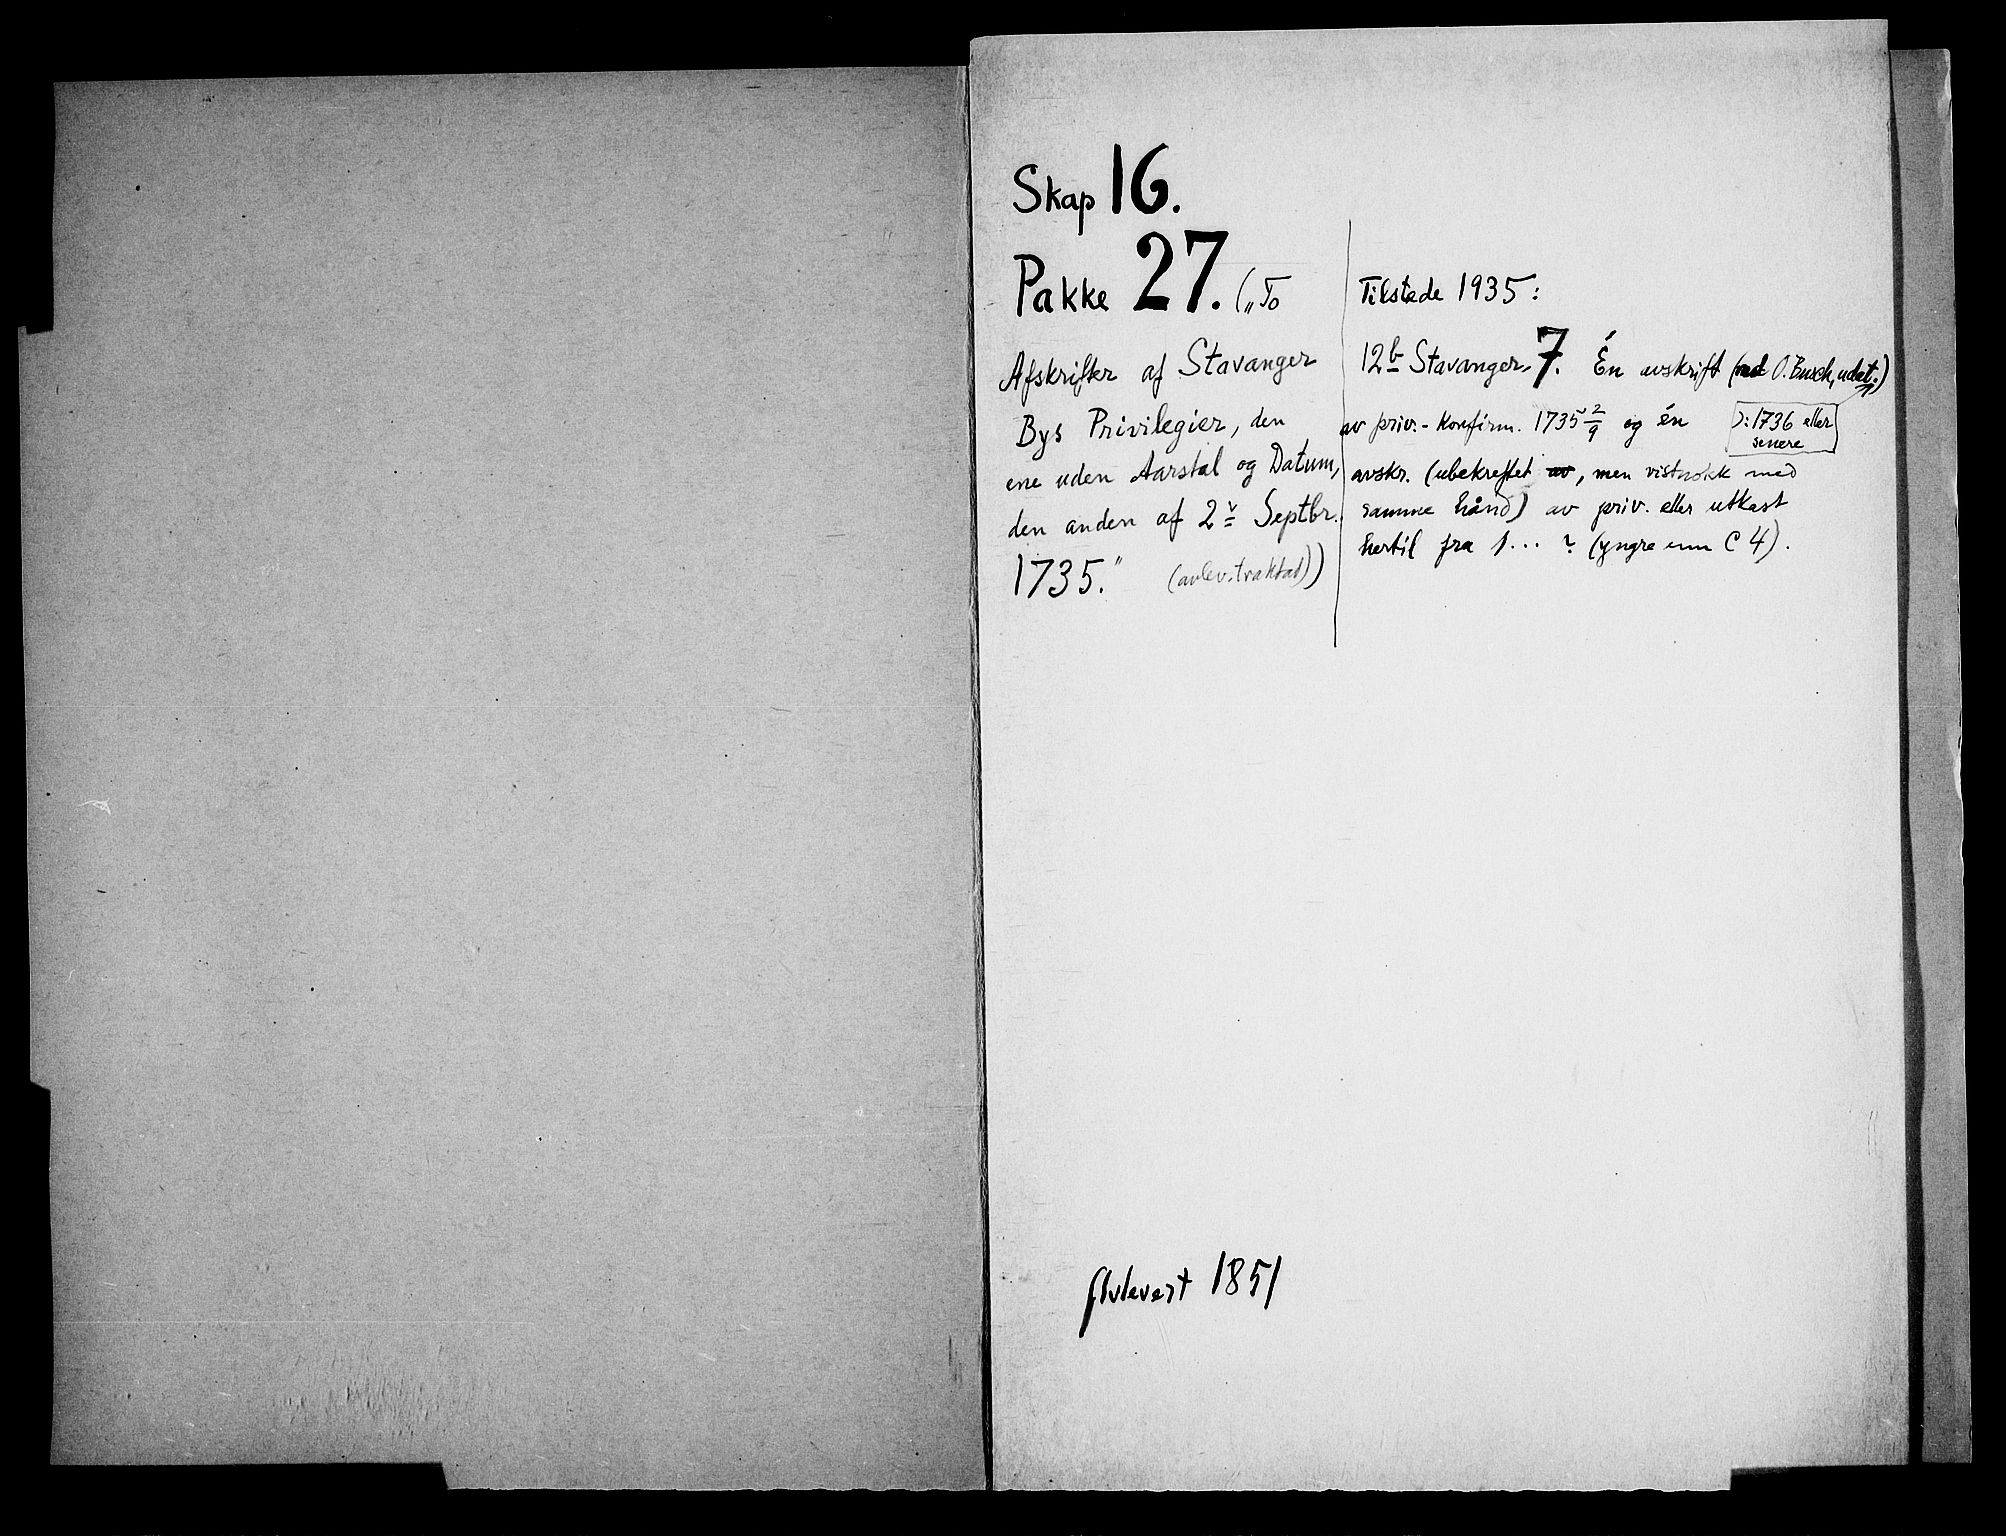 Skap 16.
Pakke 27. („To
Afskrifter af Stavanger
Bys Privilegier, den
ene uden Aarstal og Datum,
den anden af 2 Septbr.
1735.“ (avlev. traktat))
Tilstede 1935:
12b Stavanger 7. Én avskrift (ved O. Busch, udat.)
av priv.-konfirm. 1735 2/9 og én
ɔ: 1736 eller
senere
avskr. (ubekreftet av, men vistnokk med
samme hånd) av priv. eller utkast
hertil fra 1... ? (yngre enn C 4).
Avlevert 1851